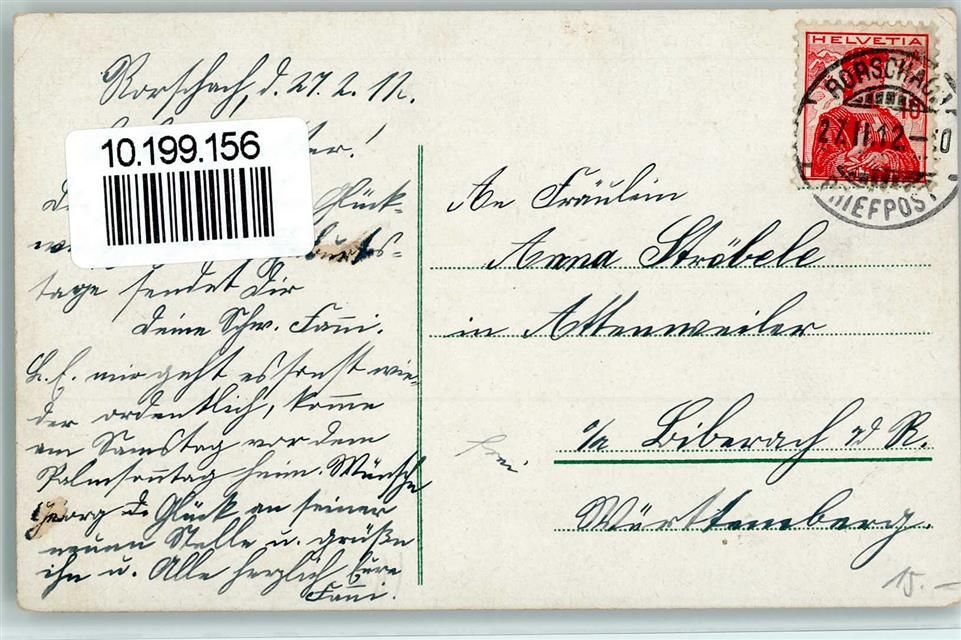 Rorschach, d. 27.2.12.
10.199.156
Glück-
tage sendet Dir
Deine Schw. Fanni.
L. E. mir geht es sonst wie-
der ordentlich, komme
am Samstag vor dem
Palmsonntag heim. Wünsche
Georg d. Glück an seiner
neuen Stelle u. grüße
ihn u. Alle herzlich Eure
Fanni.
HELVETIA
10
RORSCHACH
27.II.12.
BRIEFPOST
An Fräulein
Anna Ströbele
in Attenweiler
o/a Biberach a/d R.
Württemberg.
frei
15.-